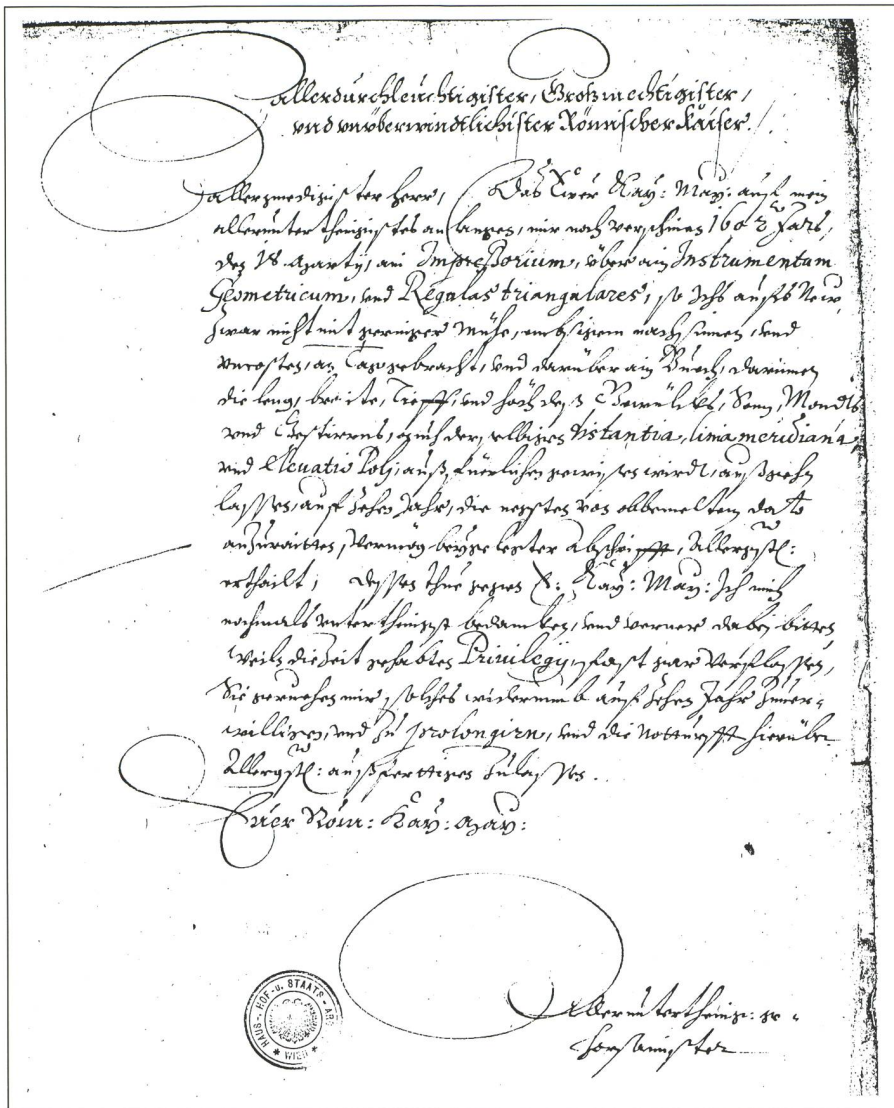 Allerdurchleuchtigister, Großmechtigister,
vnd vnüberwindtlichister Römischer Kaiser.
Allergnedigister Herr, Das Eur Kay: May: auf mein
allerunterthenigistes anlangen, mir noch verschinen 1602 Jars,
den 18 Marty, ain Impressorium, über ain Instrumentum
Geometricum, vnd Regulas triangulares, so Ichs aufs New,
zwar nicht mit geringer Mühe, embsigem nachsinnen, vnd
vncosten, an Tag gebracht, vnd darüber ain Buech, darinnen
die leng, breite, Tieff, vnd höch deß Gewülcks, Sonn, Mondts
vnd Gestirns, auch derselbigen distantia, linia meridiana,
vnd Eleuatio Polj, außfüerlichen gewisen wirdt, außgehn
lassen, auf zehen Jahr, die negsten von obbemeltem dato
anzuraitten, vermög beygelegter Abschrifft, Allergstl:
erthailt; dessen thue gegen E: Kay: May: Ich mich
nochmals vnterthenigst bedancken, vnd verner dabej bitten,
weiln die Zeit gehabten Priuilegij, fast gar verflossen,
Sie geruehen mir, solches widerumb auf zehen Jahr zuuer-
willigen, vnd zu prolongirn, vnd die Notturfft hierüber
Allergstl: außferttigen zulassen.
Euer Röm: Kay: May:
Allerunterthenig: ge-
horsamister
HAUS-, HOF- u. STAATS-ARCHIV
* WIEN *